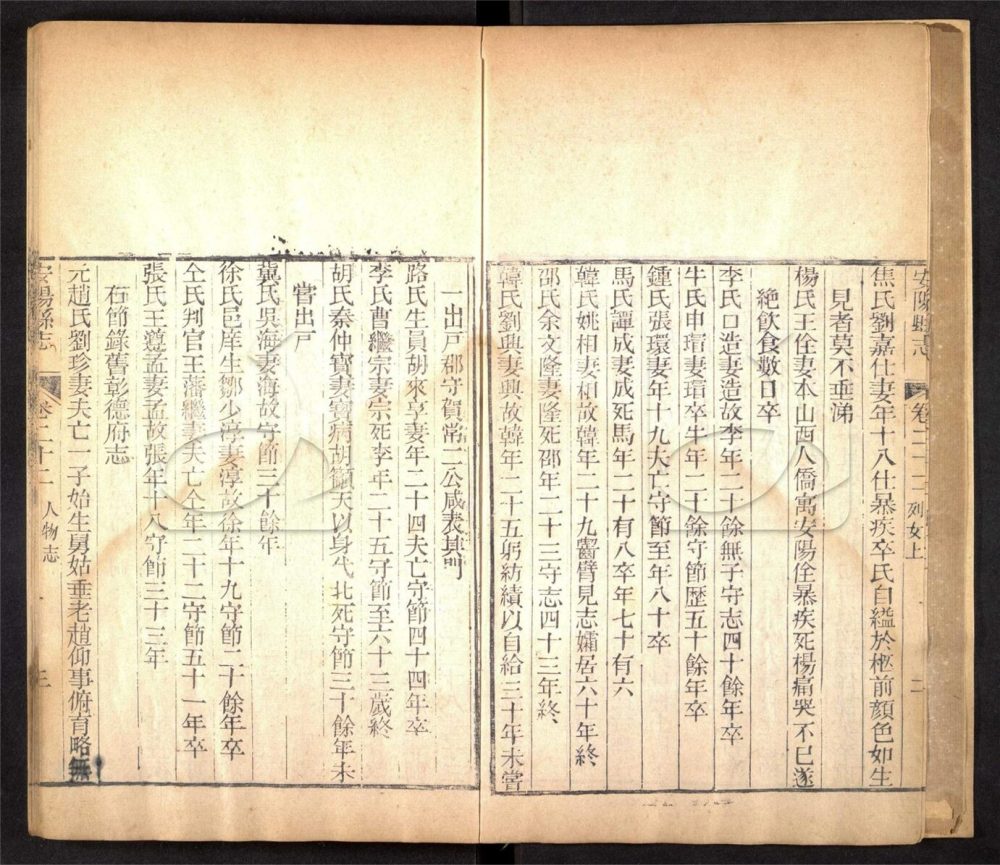 安陽縣志 卷二十二 列女上 二
焦氏劉嘉仕妻年十八仕暴疾卒氏自縊於柩前顔色如生
見者莫不垂涕
楊氏王佺妻本山西人僑寓安陽佺暴疾死楊痛哭不已遂
絶飲食數日卒
李氏口造妻造故李年二十餘無子守志四十餘年卒
牛氏申瑁妻瑁卒牛年二十餘守節歷五十餘年卒
鍾氏張環妻年十九夫亡守節至年八十卒
馬氏譚成妻成死馬年二十有八卒年七十有六
韓氏姚相妻相故韓年二十九齧臂見志孀居六十年終
邵氏余文隆妻隆死邵年二十三守志四十三年終
韓氏劉興妻興故韓年二十五躬紡績以自給三十年未嘗
一出戸郡守賀常二公咸表其門
路氏生員胡來享妻年二十四夫亡守節四十四年卒
李氏曹繼宗妻宗死李年二十五守節至六十三歲終
胡氏秦仲寶妻寶病胡籲天以身代北死守節三十餘年未
嘗出戸
冀氏吳海妻海故守節三十餘年
徐氏邑庠生鄒少淳妻淳故徐年十九守節二十餘年卒
仝氏判官王藩繼妻夫亡仝年二十二守節五十一年卒
張氏王遵孟妻孟故張年十八守節三十三年
右節錄舊彰德府志
元趙氏劉珍妻夫亡一子始生舅姑垂老趙仰事俯育略無
安陽縣志 卷二十二 人物志 三